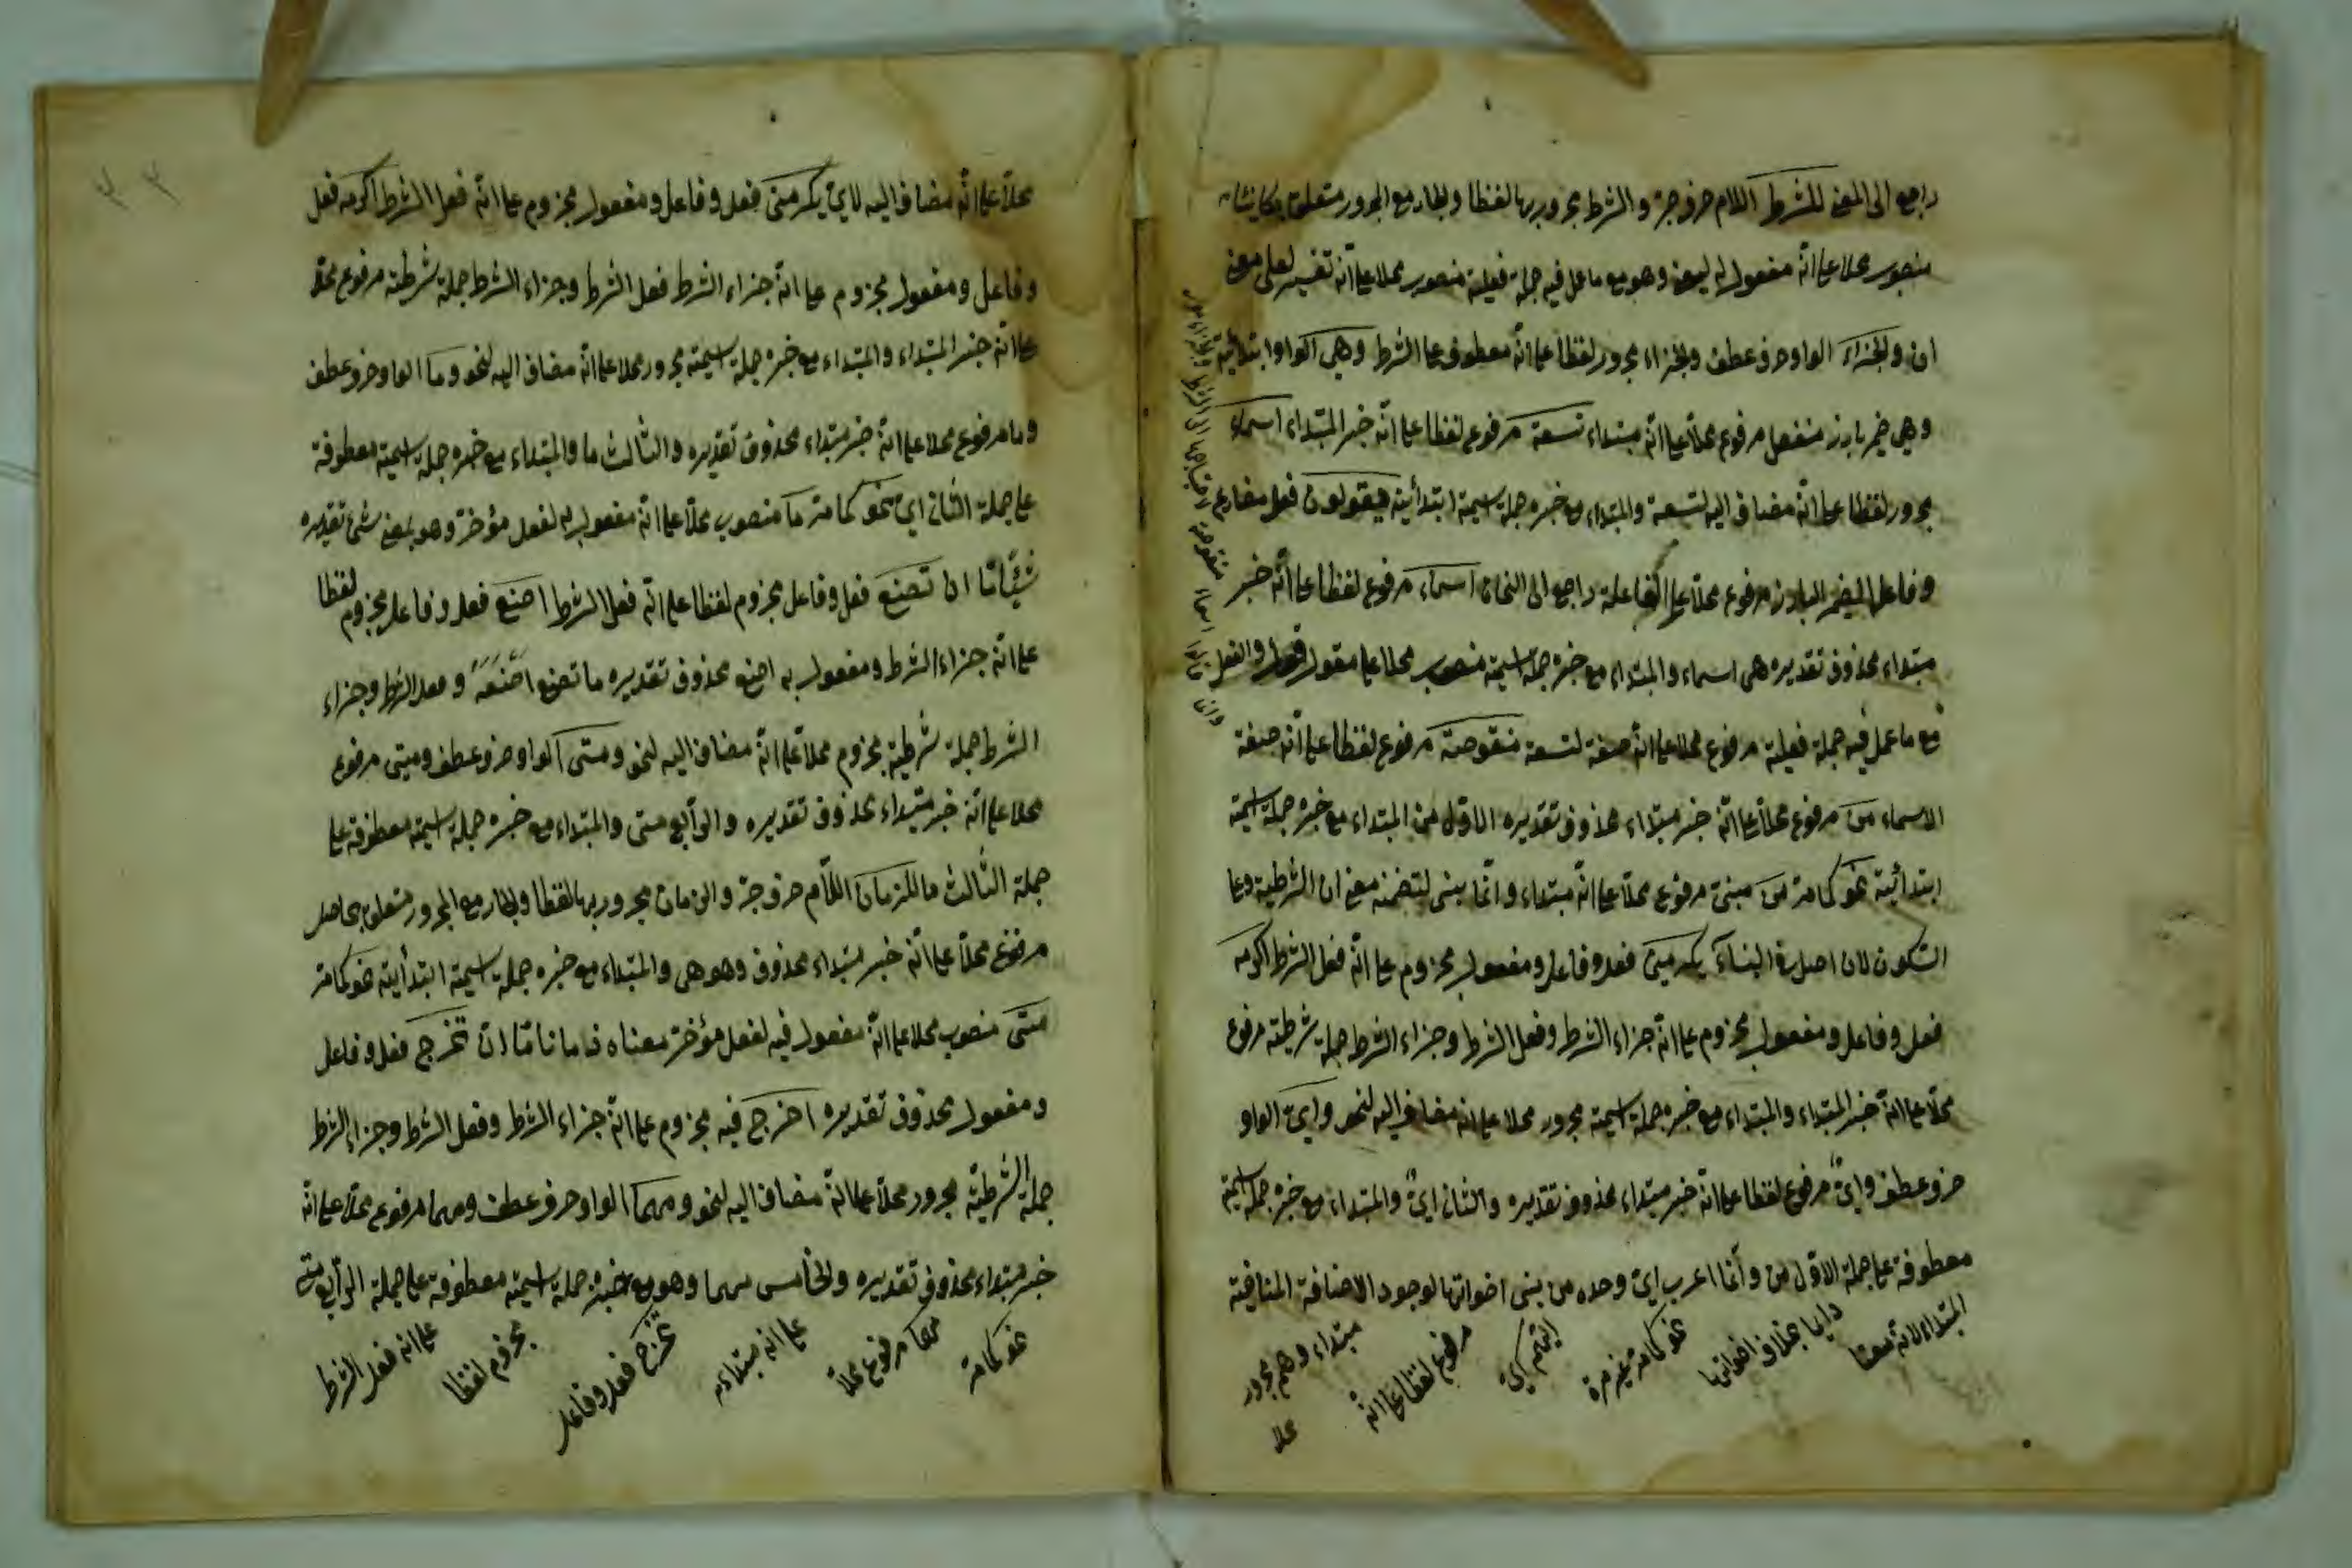 راجع الى المعنى للشرط اللام حرف جر والشرط مجرور بها لفظا والجار مع المجرور متعلق بكائنا
منصوب محلا على انه مفعول له ليعنى وهو مع ما عمل فيه جملة فعلية منصوب محلا على انه تفسير لعلى معنى
ان والجزاء الواو حرف عطف والجزاء مجرور لفظا على انه معطوف على الشرط وهي الواو ابتدائية
وهي ضمير بارز منفصل مرفوع محلا على انه مبتداء تسعة مرفوع لفظا على انه خبر المبتداء اسماء
مجرور لفظا على انه مضاف اليه لتسعة والمبتداء مع خبره جملة اسمية ابتدائية فيقولون فعل مضارع
وفاعل الضمير البارز مرفوع محلا على الفاعلة راجع الى النحات اسماء مرفوع لفظا على انه خبر
مبتداء محذوف تقديره هي اسماء والمبتداء مع خبره جملة اسمية منصوب محلا على مقول قول والفعل
مع ما عمل فيه جملة فعلية مرفوع محلا على انه صفة لتسعة منقوصة مرفوع لفظا على انه صفة
الاسماء من مرفوع محلا على انه خبر مبتداء محذوف تقديره الاول من المبتداء مع خبره جملة اسمية
ابتدائية نحو كما مر من مبنى مرفوع محلا على انه مبتداء وانما بنى لتضمنه معنى ان الشرطية وعلى
السكون لان اصل في البناء يكرمنى فعل وفاعل ومفعول مجزوم على انه فعل الشرط اكرمه
فعل وفاعل ومفعول مجزوم على انه جزاء الشرط وفعل الشرط وجزاء الشرط جملة شرطية مرفوع
محلا على انه خبر المبتداء والمبتداء مع خبره جملة اسمية مجرور محلا على انه مضاف اليه لنحو واىّ الواو
حرف عطف واىّ مرفوع لفظا على انه خبر مبتداء محذوف تقديره والثانى اىّ والمبتداء مع خبره جملة اسمية
معطوفة على جملة الاول من وانما اعرب اىّ وحده من بنى اخواتها لوجود الاضافة المنافية
المبتداء لانه
بخلاف اخواتها
نحو كما مر غير مرة
ايّهم اىّ
مرفوع لفظا على انه
مبتداء وهم مجرور
محلا
محلا على انه مضاف اليه لاىّ يكرمنى فعل وفاعل ومفعول مجزوم على انه فعل الشرط اكرمه فعل
وفاعل ومفعول مجزوم على انه جزاء الشرط فعل الشرط وجزاء الشرط جملة شرطية مرفوع محلا
على انه خبر المبتداء والمبتداء مع خبره جملة اسمية مجرور محلا على انه مضاف اليه لنحو وما الواو حرف عطف
وما مرفوع محلا على انه خبر مبتداء محذوف تقديره والثالث ما والمبتداء مع خبره جملة اسمية معطوفة
على جملة الثانى اىّ نحو كما مر ما منصوب محلا على انه مفعول به لفعل مؤخر وهو بمعنى شئ تقديره
ان تصنع فعل وفاعل مجزوم لفظا على انه فعل الشرط اصنع فعل وفاعل مجزوم لفظا
على انه جزاء الشرط ومفعول به اصنع محذوف تقديره ما تصنع اصنعه وفعل الشرط وجزاء
الشرط جملة شرطية مجزوم محلا على انه مضاف اليه لنحو ومتى الواو حرف عطف ومتى مرفوع
محلا على انه خبر مبتداء محذوف تقديره والرابع متى والمبتداء مع خبره جملة اسمية معطوفة على
جملة الثالث ما للزمان اللام حرف جر والزمان مجرور بها لفظا والجار مع المجرور متعلق بحاصل
مرفوع محلا على انه خبر مبتداء محذوف وهو هي والمبتداء مع خبره جملة اسمية ابتدائية نحو كما مر
متى منصوب محلا على انه مفعول فيه لفعل مؤخر معناه زمانا ان تخرج فعل وفاعل
ومفعول محذوف تقديره اخرج فيه مجزوم على انه جزاء الشرط وفعل الشرط وجزاء الشرط
جملة الشرطية مجرور محلا على انه مضاف اليه لنحو ومهما الواو حرف عطف ومهما مرفوع محلا على انه
خبر مبتداء محذوف تقديره والخامس مهما وهو مع خبره جملة اسمية معطوفة على جملة الرابع متى
نحو كما مر
مهما مرفوع محلا
على انه مبتداء
تخرج فعل وفاعل
مجزوم لفظا
على انه فعل الشرط